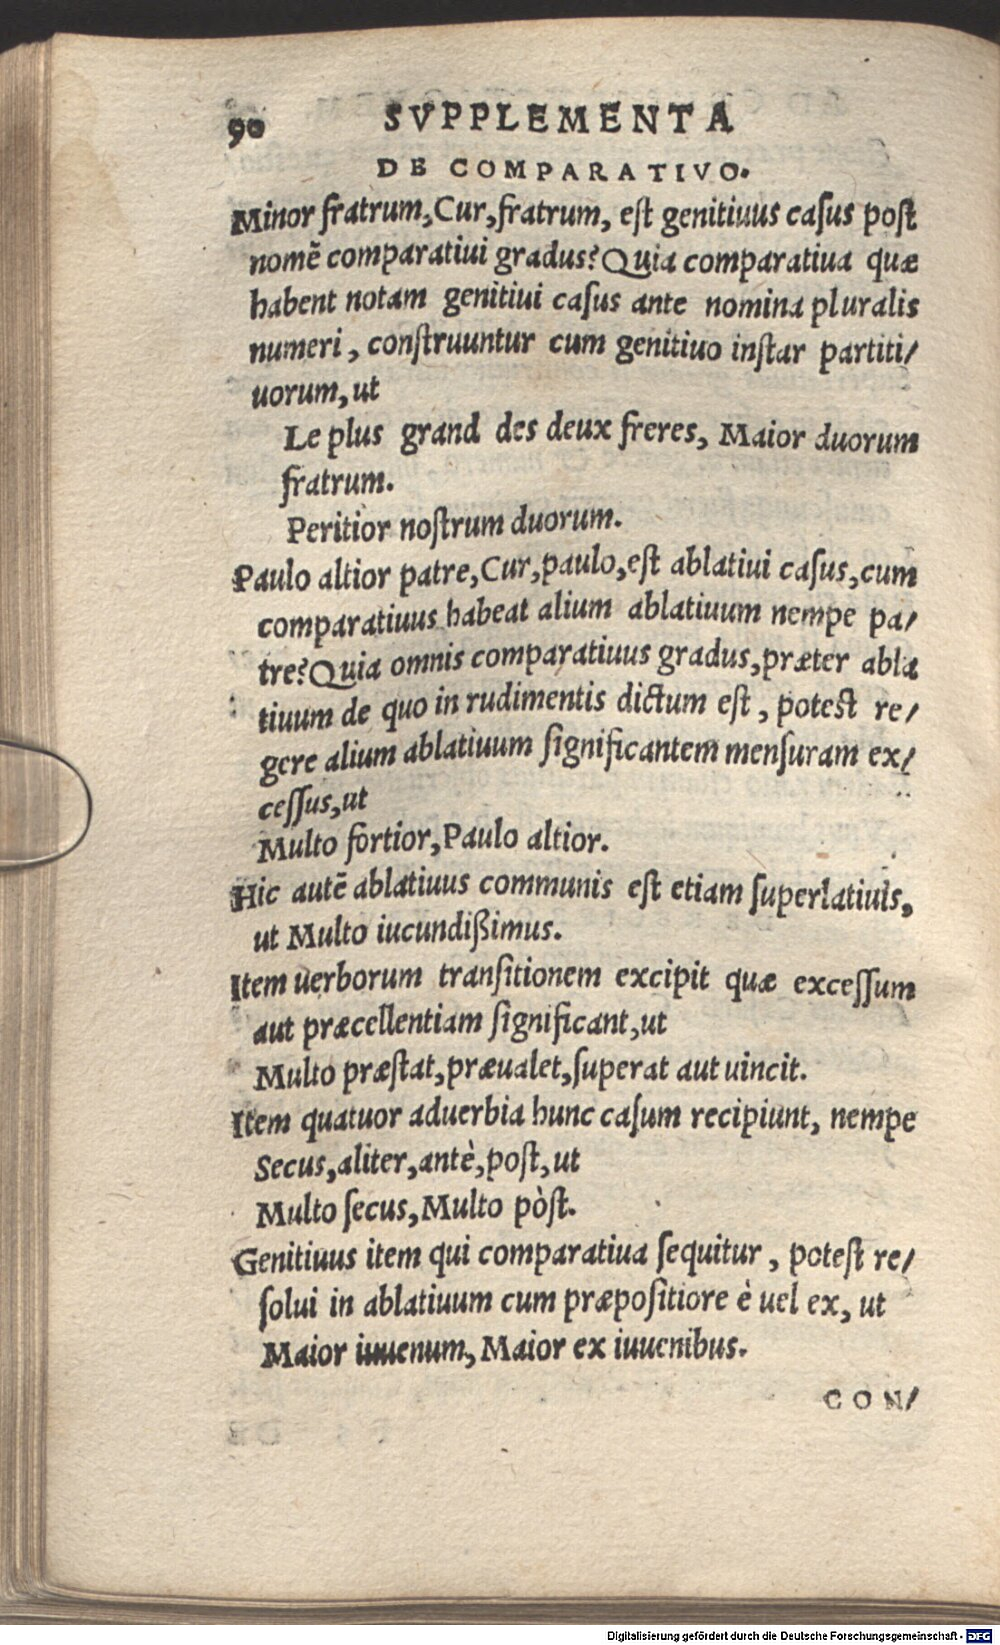 90 SVPPLEMENTA
DE COMPARATIVO.
Minor fratrum, Cur, fratrum, eſt genitiuus caſus poſt
nomẽ comparatiui gradus? Quia comparatiua quæ
habent notam genitiui caſus ante nomina pluralis
numeri, conſtruuntur cum genitiuo inſtar partiti/
uorum, ut
Le plus grand des deux freres, Maior duorum
fratrum.
Peritior noſtrum duorum.
Paulo altior patre, Cur, paulo, eſt ablatiui caſus, cum
comparatiuus habeat alium ablatiuum nempe pa/
tre? Quia omnis comparatiuus gradus, præter abla
tiuum de quo in rudimentis dictum eſt, poteſt re/
gere alium ablatiuum ſignificantem menſuram ex/
ceſſus, ut
Multo fortior, Paulo altior.
Hic autẽ ablatiuus communis eſt etiam ſuperlatiuis,
ut Multo iucundißimus.
Item uerborum tranſitionem excipit quæ exceſſum
aut præcellentiam ſignificant, ut
Multo præſtat, præualet, ſuperat aut uincit.
Item quatuor aduerbia hunc caſum recipiunt, nempe
Secus, aliter, antè, poſt, ut
Multo ſecus, Multo pòſt.
Genitiuus item qui comparatiua ſequitur, poteſt re/
ſolui in ablatiuum cum præpoſitiore è uel ex, ut
Maior iuuenum, Maior ex iuuenibus.
CON/
Digitalisierung gefördert durch die Deutsche Forschungsgemeinschaft - DFG